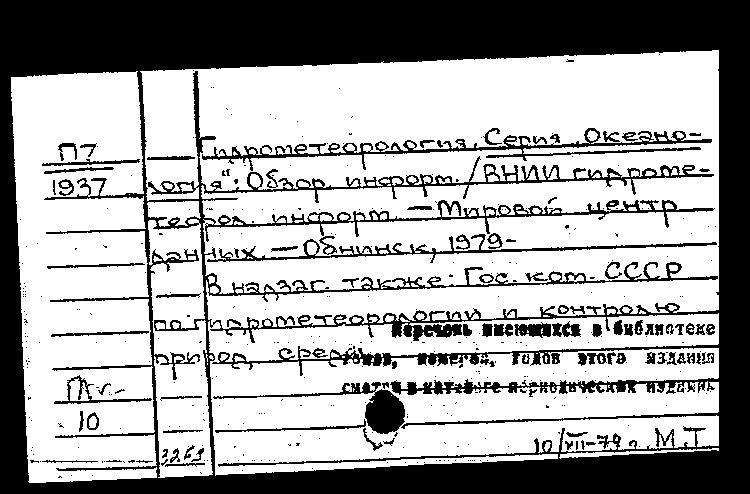 П7
1937
Гидрометеорология. Серия „Океано-
логия": Обзор. информ. / ВНИИ гидроме-
теорол. информ. — Мировой центр
данных. — Обнинск, 1979-
В надзаг. также: Гос. ком. СССР
по гидрометеорологии и контролю
природ. среды
Перечень имеющихся в библиотеке
томов, номеров, годов этого издания
смотри в каталоге периодических изданий
10
3269
10/VII-79 г. М.Т